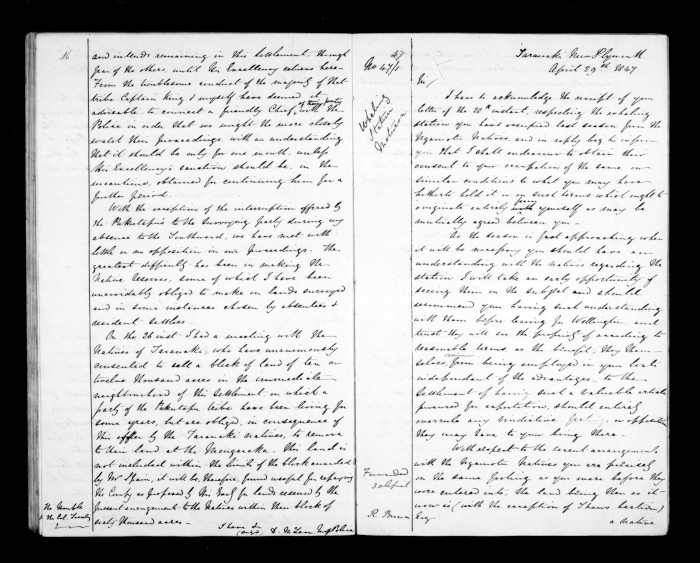 16
and intends remaining in this Settlement through
fear of the others, until His Excellency returns here.
From the troublesome conduct of the majority of that
tribe Captain King & myself have deemed it
advisable to connect a friendly Chief, of their party, with the
Police in order that we might the more closely
watch their proceedings, with an understanding
that it should be only for one month, unless
His Excellency's sanction should be, in the
meantime, obtained for continuing him for a
further period.
With the exception of the interruption offered by
the Puketapu's to the Surveying party during my
absence to the Southward, we have met with
little or no opposition in our proceedings. The
greatest difficulty has been in making the
Native Reserves, some of which I have been
unavoidably obliged to make on lands surveyed
and in some instances chosen by absentees &
resident settlers.
On the 26 inst I had a meeting with the
Natives of Taranaki, who have unanimously
consented to sell a block of land of ten or
twelve thousand acres in the immediate
neighbourhood of this Settlement, on which a
party of the Puketapu tribe have been living for
some years, but are obliged, in consequence of
this offer by the Taranaki natives, to remove
to their land at the Mangoraka. This land is
not included within the limits of the block awarded
by Mr Spain, it will be, therefore, found useful for repaying
the Compy as proposed by His Excy for lands reserved by the
present arrangement to the Natives within their block of
sixty thousand acres.
I have &c
Signed D. McLean Insp Police
The Honble
The Col. Secretary
47
No 47/1
Whaling
Station
Natives
Taranaki New Plymouth
April 29th 1847
Sir,
I have to acknowledge the receipt of your
letter of the 20th instant, respecting the whaling
station you have occupied last season from the
Ngamotu Natives and in reply beg to inform
you that I shall endeavour to obtain their
consent to your occupation of the same on
similar conditions to what you may have
hitherto held it or on such terms which ought to
originate entirely from yourself as may be
mutually agreed between you.
As the season is fast approaching when
it will be necessary you should have an
understanding with the natives regarding the
station I will take an early opportunity of
seeing them on the subject and should
recommend your having such understanding
with them before leaving for Wellington, and
trust they will see the propriety of acceding to
reasonable terms, as the benefit, they them-
selves, from being employed in your boats
independent of the advantages to the
Settlement of having such a valuable article
procured for exportation, should entirely
overrule any vindictive feeling or opposition
they may have to your being there.
With respect to the recent arrangements
with the Ngamotu Natives you are precisely
on the same footing as you were before they
were entered into, the land being then as it
now is (with the exception of Shaws Section)
a Native
Forwarded
30th April
R. Brown
Esq